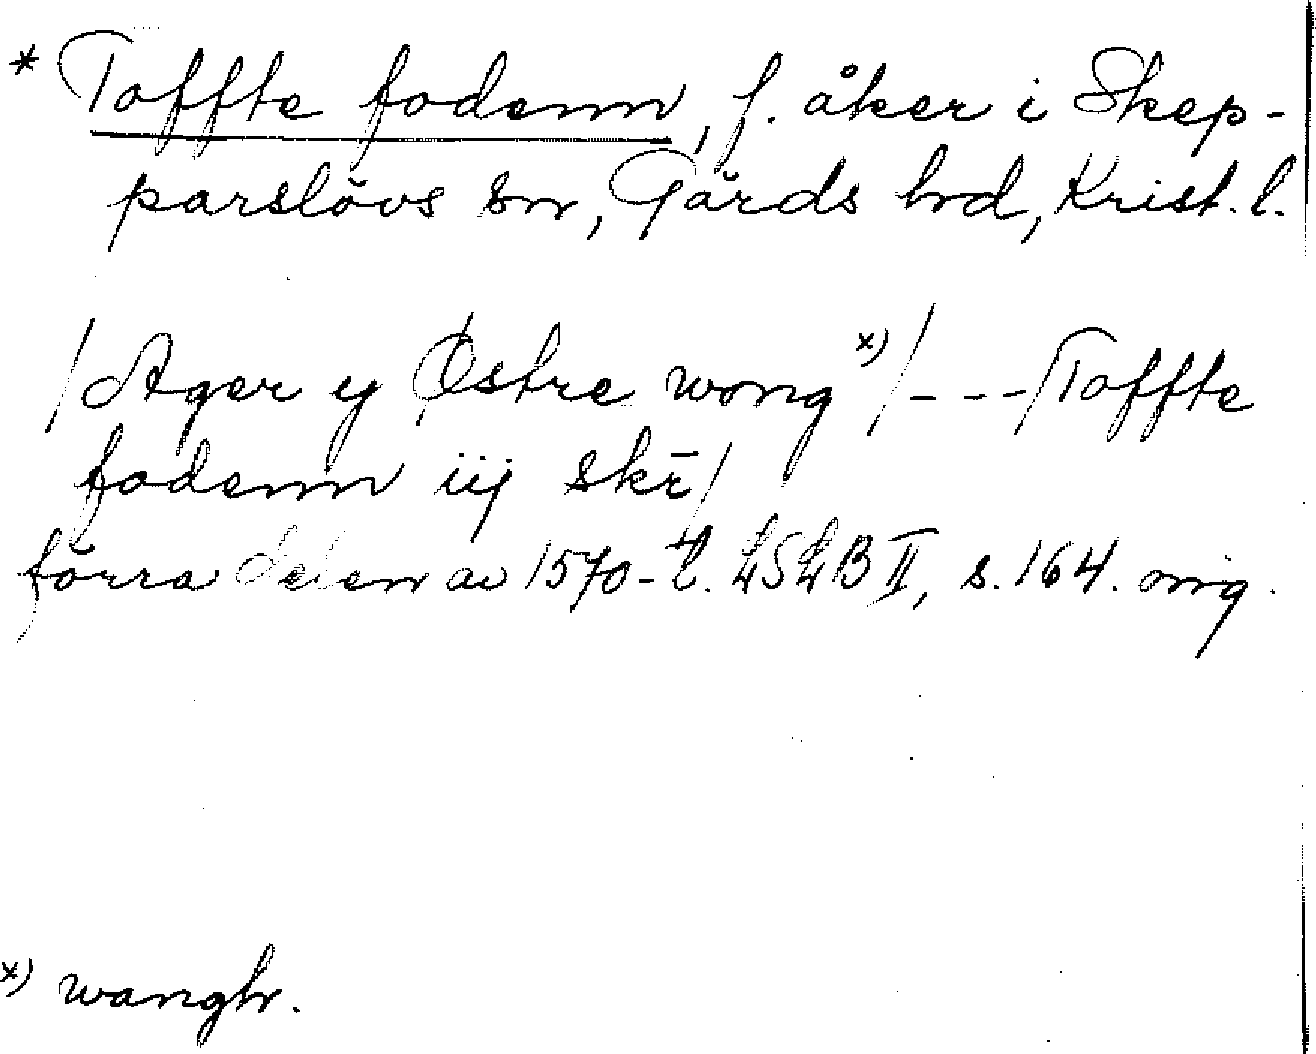 * Toffte fodenn, f. åker i Skep-
parslövs sn, Gärds hd, Krist. l.
/Ager y Østre wong x)/ - - - /Toffte
fodenn iij skr̄/
förra delen av 1570-t. LSLB II, s. 164. orig.
x) wangh.